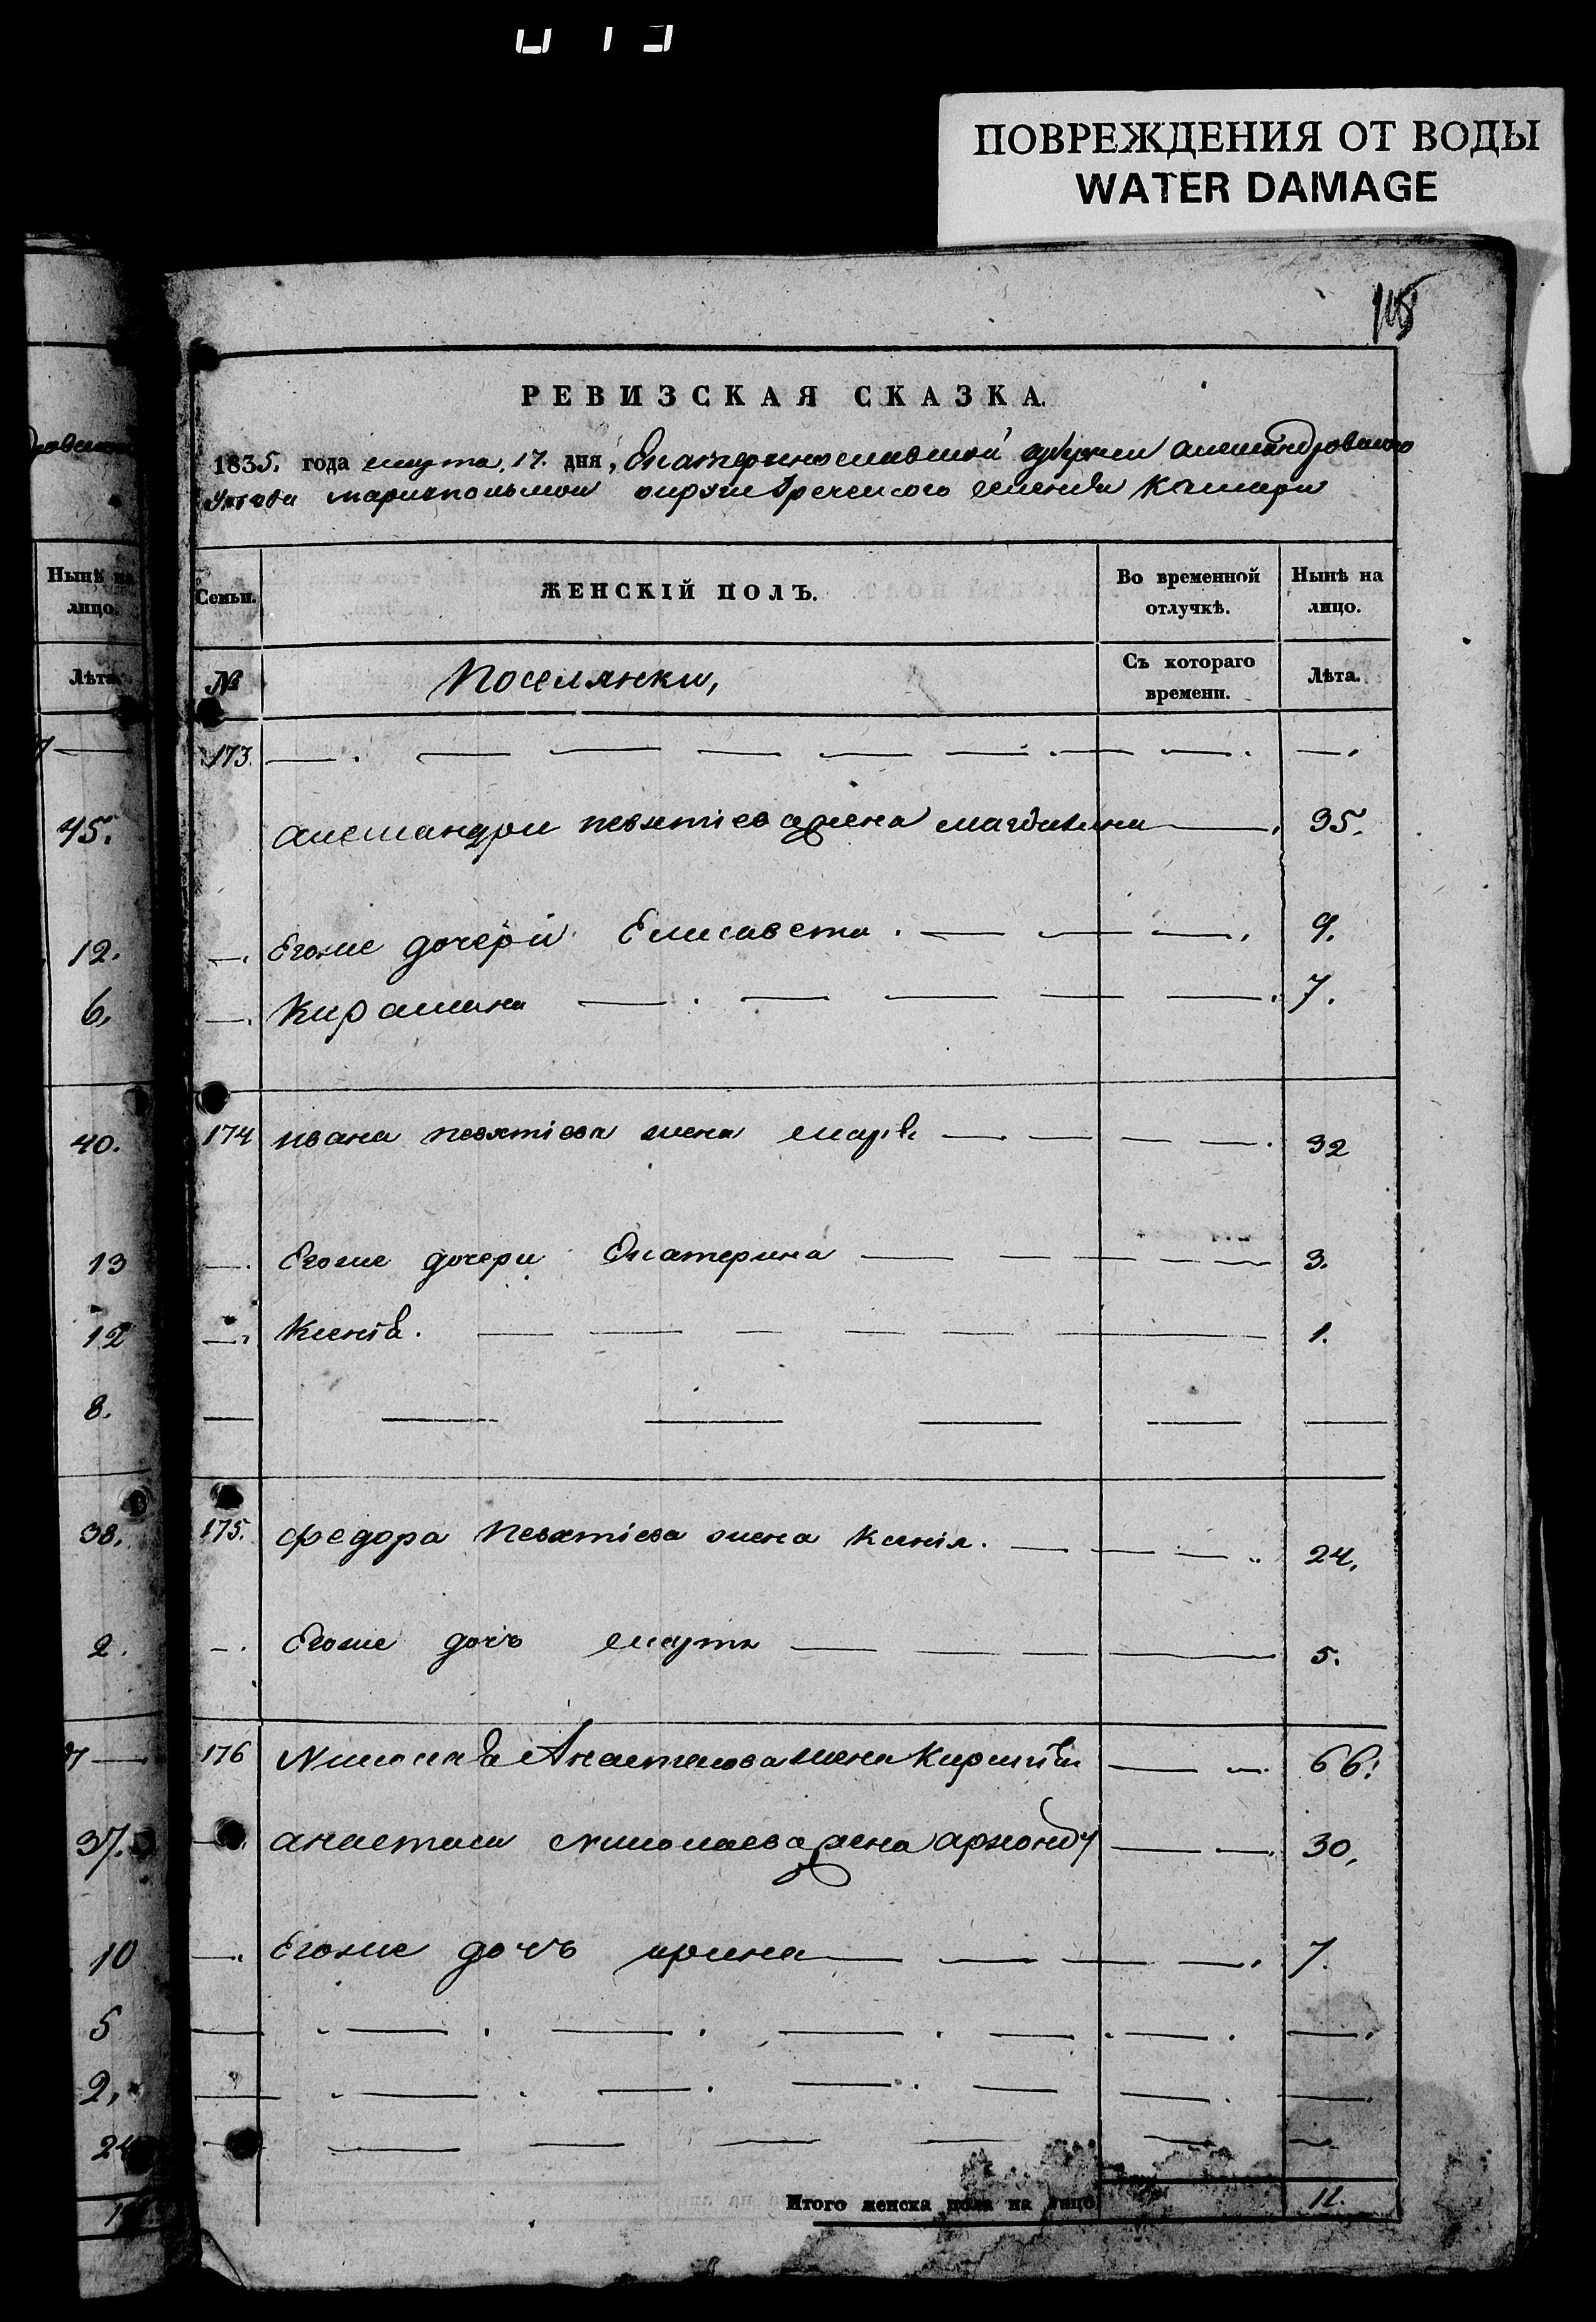 ПОВРЕЖДЕНИЯ ОТ ВОДЫ
WATER DAMAGE
РЕВИЗСКАЯ СКАЗКА.
1835. года марта, 17. дня, Екатеринославской губернии александровского
Уезда мариупольской округи Греческого селения
Нынѣ на лицо.
Семьи.
ЖЕНСКІЙ ПОЛЪ.
Во временной отлучкѣ.
Нынѣ на лицо.
Лѣта.
№
Поселянки,
Съ котораго времени.
Лѣта.
173.
45.
александра певхтіева жена магдалина 35.
12.
Егоже дочери Елисавета. 9.
6.
Кирамина 7.
40.
174 ивана певхтіева жена марія 32
13
Егоже дочери Екатерина 3.
12
Ксенія. 1.
8.
38.
175. федора певхтіева жена Ксенія. 24.
2.
Егоже дочь марта 5.
176 Николая Анастасова жена 66.
37.
анастаса николаева жена архонду 30,
10
Егоже дочь ирина 7.
5
2,
24
Итого женска пола на лицо 12.